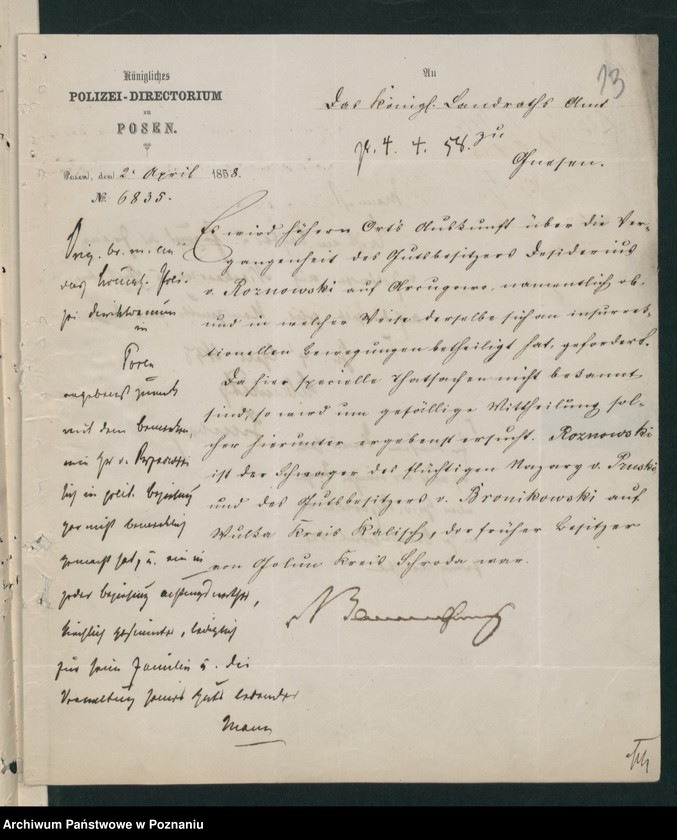 13
Königliches
POLIZEI-DIRECTORIUM
zu
POSEN.
Posen, den 2ᵗ April 1858.
No. 6835.
An
Das Königl. Landraths Amt
zu
Gnesen.
pr. 4. 4. 58.
Es wird höhern Orts Auskunft über die Ver-
gangenheit des Gutsbesitzers Desiderius
v. Roznowski auf Arcugowo, namentlich ob
und in welcher Weise derselbe sich an insurrec-
tionellen Bewegungen betheiligt hat, gefordert.
Da hier specielle Thatsachen nicht bekannt
sind, so wird um gefällige Mittheilung sol-
cher hierunter ergebenst ersucht. Roznowski
ist der Schwager des flüchtigen Nazary v. Pruski
und des Gutsbesitzers v. Bronikowski auf
Wulka Kreis Kalisch, der früher Besitzer
von Golun Kreis Schroda war.
Orig. br. m. an
das Königl. Poli-
zei Direktorium
in
Posen
ergebenst zurück
mit dem Bemerken,
Hr v.
sich in polit. Beziehung
gar nicht bemerklich
gemacht hat, u. ein in
jeder Beziehung achtungswerther,
gesinnter, lediglich
für seine Familie u. die
Verwaltung seines Guts lebender
Mann
Archiwum Państwowe w Poznaniu